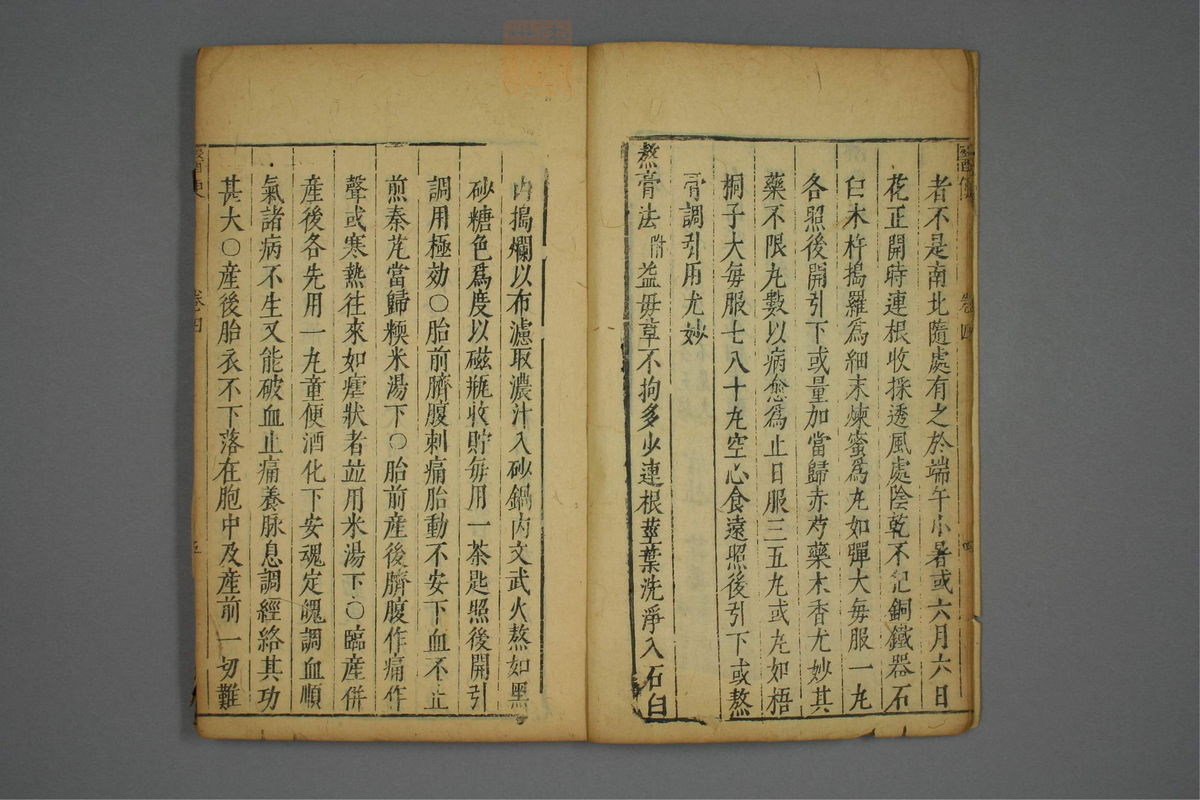 者不是南北隨處有之於端午小暑或六月六日
花正開時連根收採透風處陰乾不犯銅鐵器石
臼木杵搗羅爲細末煉蜜爲丸如彈大每服一丸
各照後開引下或量加當歸赤芍藥木香尤妙其
藥不限丸數以病愈爲止日服三五丸或丸如梧
桐子大每服七八十丸空心食遠照後引下或熬
膏調引用尤妙
熬膏法附益毋草不拘多少連根莖葉洗淨入石臼
內搗爛以布濾取濃汁入砂鍋內文武火熬如黑
砂糖色爲度以磁瓶收貯每用一茶匙照後開引
調用極効○胎前臍腹刺痛胎動不安下血不止
煎秦艽當歸糯米湯下○胎前產後臍腹作痛作
聲或寒熱往來如瘧狀者並用米湯下○臨產併
產後各先用一丸童便酒化下安魂定魄調血順
氣諸病不生又能破血止痛養脉息調經絡其功
甚大○產後胎衣不下落在胞中及產前一切難
卷四